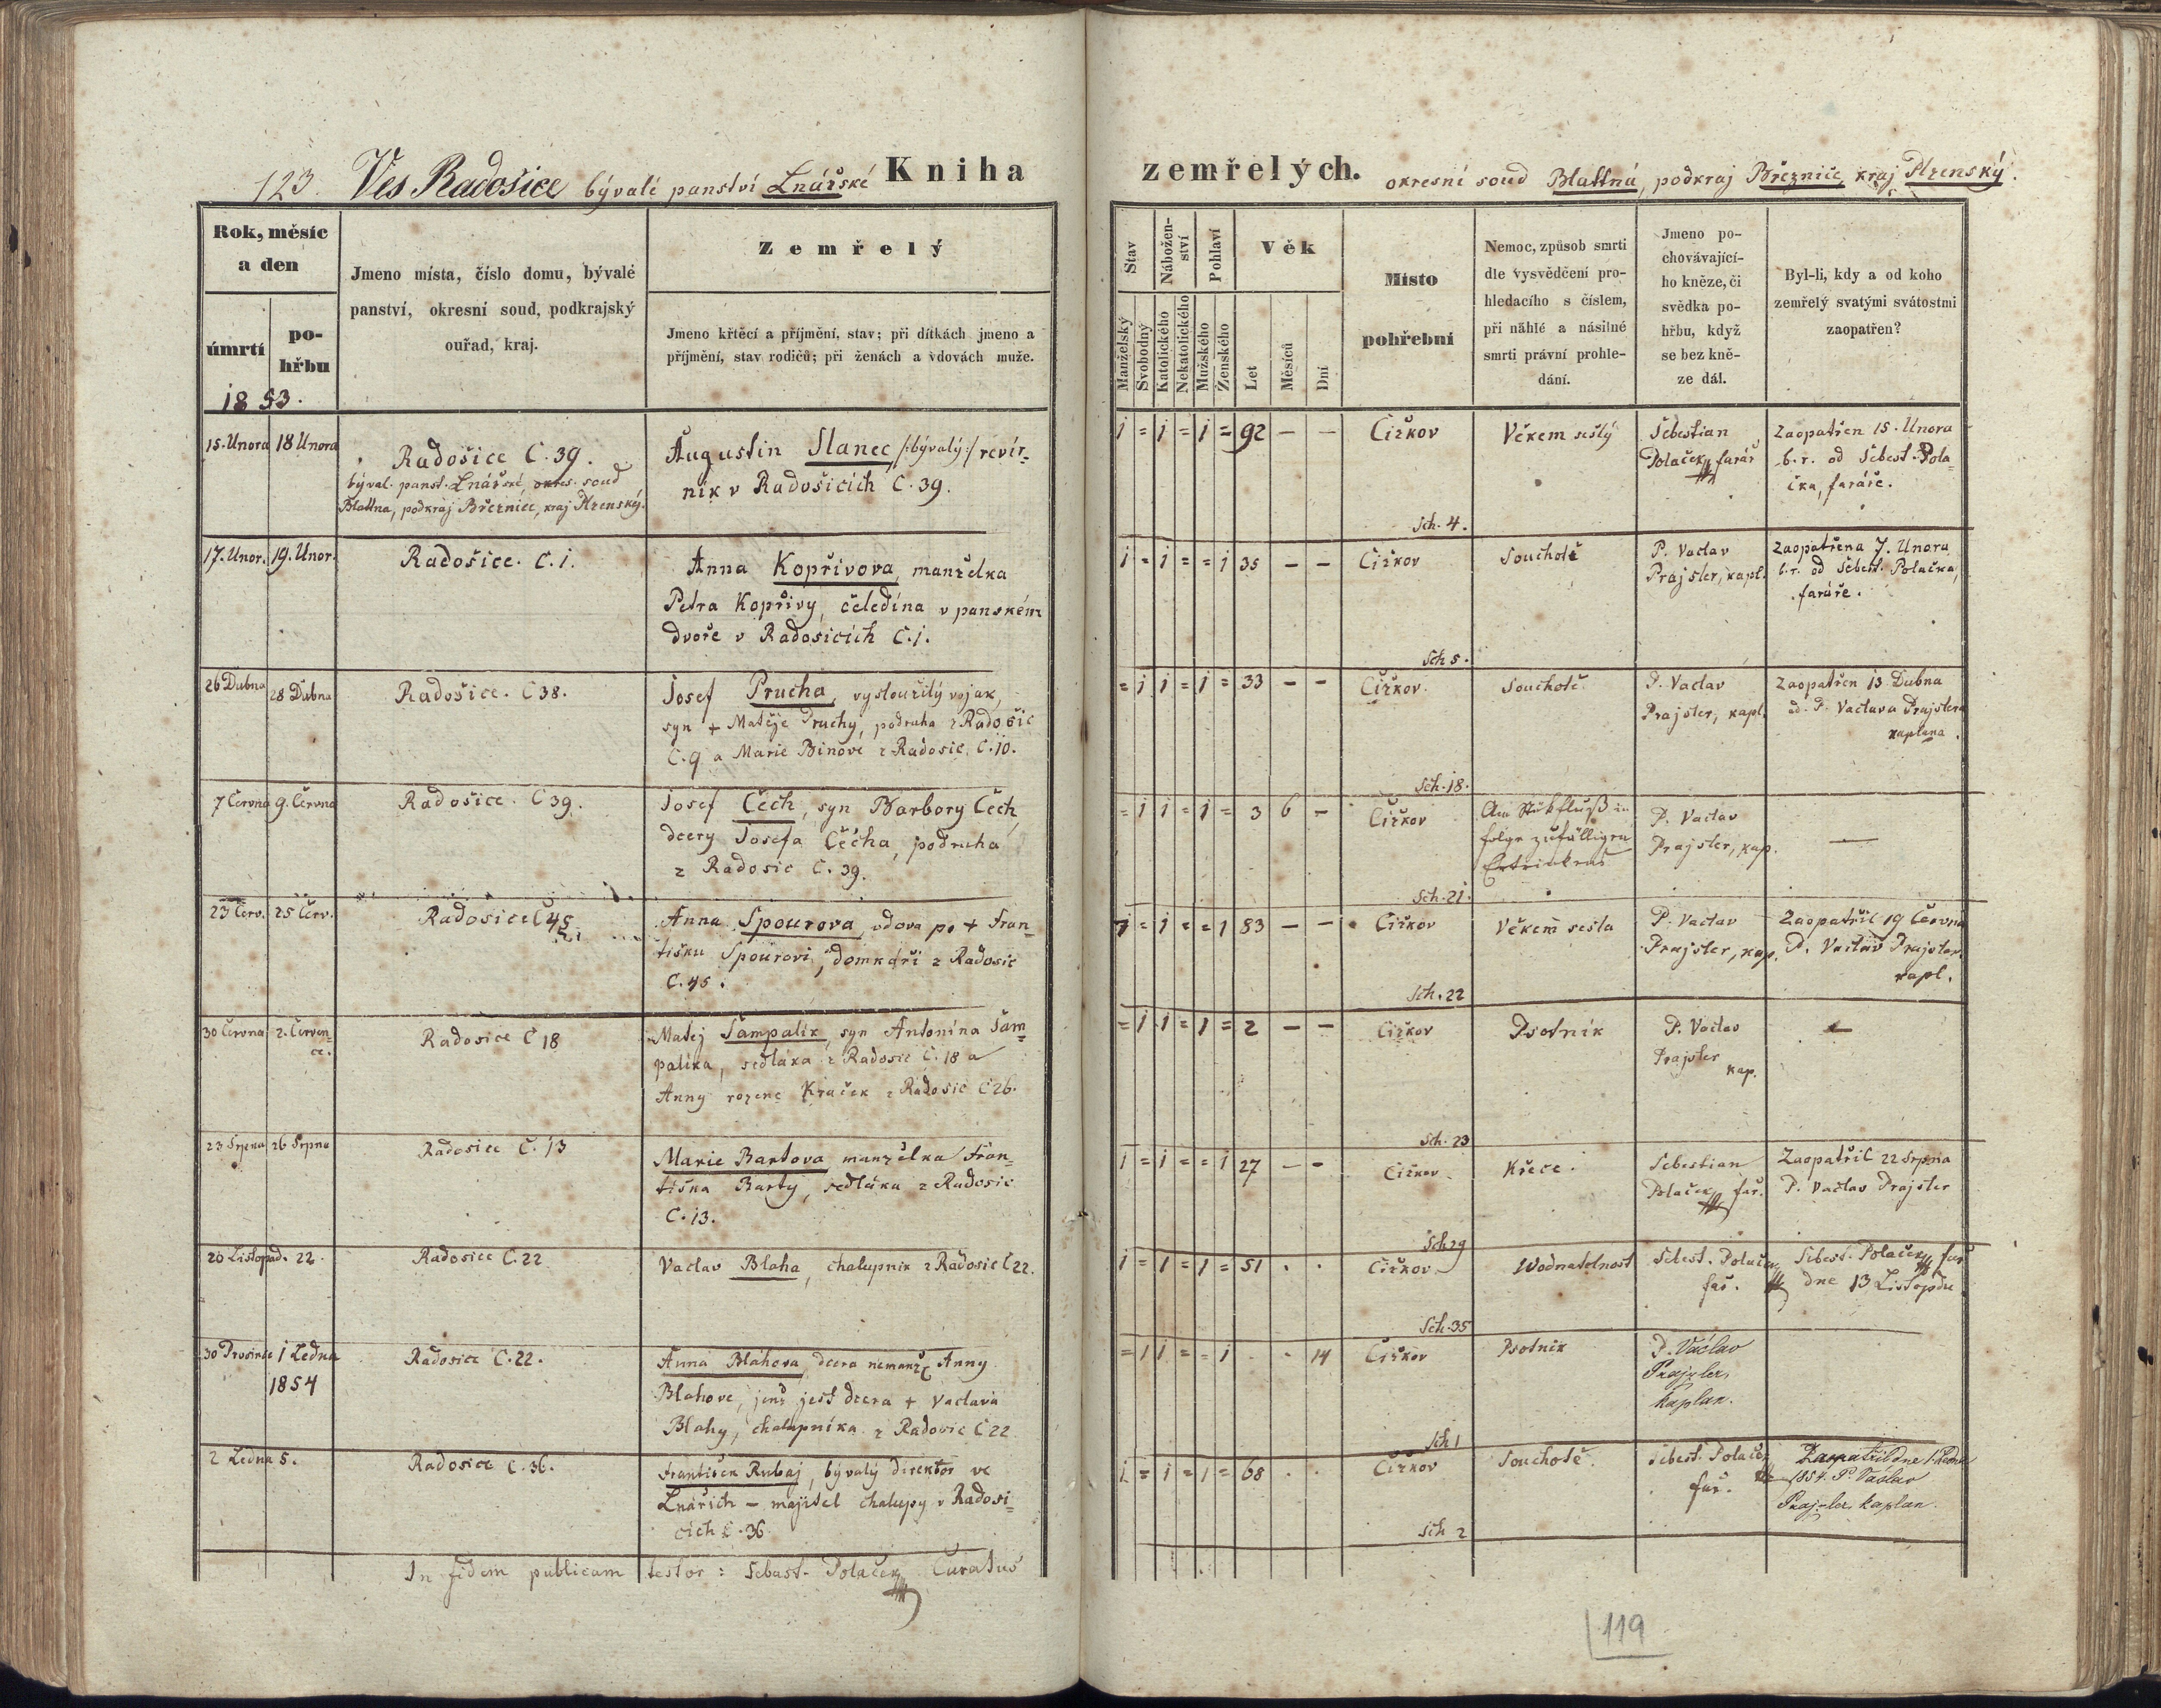 123. Ves Radošice bývalé panství Lnářské Kniha
Rok, měsíc
a den
úmrtí
po-
hřbu
1853.
Jmeno místa, číslo domu, bývalé
panství, okresní soud, podkrajský
ouřad, kraj.
Zemřelý
Jmeno křtěcí a příjmění, stav; při dítkách jmeno a
příjmění, stav rodičů; při ženách a vdovách muže.
15. Unora 18 Unora
Radošice C. 39.
býval. panst. Lnářské, okres. soud
Blattna, podkraj Březnice, kraj Plzenský.
Augustin Slanec /:bývalý:/ revír-
nik v Radošicích C. 39.
17. Unor. 19. Unor.
Radošice. C. 1.
Anna Kopřivova, manželka
Petra Kopřivy, čeledína v panském
dvoře v Radosicích C. 1.
26 Dubna 28 Dubna
Radošice. C 38.
Josef Prucha, vysloužilý vojak,
syn + Matěje Pruchy, podruha z Radošic
C. 9 a Marie Binove z Radosic C. 10.
7 Června 9. Června
Radošice. C 39.
Josef Čech, syn Barbory Čech,
dcery Josefa Čécha, podruha
z Radosic C. 39.
23 Červ. 25 Červ.
Radosice C 45
Anna Spourova, vdova po + Fran-
tišku Spourovi, domkáři z Radosic
C. 45.
30 Června 2. Červen-
ce.
Radosice C 18
Matěj Šampalík, syn Antonína Šam-
palíka, sedláka z Radosic C. 18 a
Anny rozene Kraček z Radosic C 26.
23 Srpna 26 Srpna
Radosice C. 13
Marie Bartova manželka Fran-
tiška Barty, sedláka z Radosic
C. 13.
20 Listopad. 22.
Radosice C. 22
Vaclav Blaha, chalupnik z Radosic C 22.
30 Prosince 1 Ledna
1854
Radosice C. 22.
Anna Blahova, dcera nemanž. Anny
Blahove, jenž jest dcera + Vaclava
Blahy, chalupníka z Radosic C 22
2 Ledna 5.
Radosice C. 36.
František Rubaj, bývalý direktor ve
Lnářích - majitel chalupy v Radosi-
cích C. 36.
In fidem publicam testor: Sebast. Polaček Curatus
zemřelých. okresní soud Blattná, podkraj Březnice, kraj Plzenský.
Stav
Nábožen-
ství
Pohlaví
Věk
Manželský
Svobodný
Katolického
Nekatolického
Mužského
Ženského
Let
Měsíců
Dní
Místo
pohřební
Nemoc, způsob smrti
dle vysvědčení pro-
hledacího s číslem,
při náhlé a násilné
smrti právní prohle-
dání.
Jmeno po-
chovávající-
ho kněze, či
svědka po-
hřbu, když
se bez kně-
ze dál.
Byl-li, kdy a od koho
zemřelý svatými svátostmi
zaopatřen?
1 = 1 = 1 = 92 - -
Čižkov
Sch. 4.
Věkem sešlý
Šebestian
Polaček, farář
Zaopatřen 15. Unora
b. r. od Šebest. Pola-
čka, faráře.
1 = 1 = = 1 35 - -
Čižkov
Sch 5.
Souchotě
P. Vaclav
Prajsler, kapl.
Zaopatřena 7. Unora
b. r. od Šebest. Polačka,
faráře.
= 1 1 = 1 = 33 - -
Čižkov.
Sch. 18.
Souchotě.
P. Vaclav
Prajsler, kapl.
Zaopatřen 13 Dubna
od P. Vaclava Prajslera
kaplana.
= 1 1 = 1 = 3 6 -
Čižkov
Sch. 21.
Am Stikfluß in
folge zufälligen
Ertrinkens
P. Vaclav
Prajsler, kap.
-
1 = 1 = = 1 83 - -
Čižkov
Sch. 22
Věkem sešla
P. Vaclav
Prajsler, kap.
Zaopatřil 19 Června
P. Vaclav Prajsler
kapl.
= 1 1 = 1 = 2 - -
Čižkov
Sch. 23
Psotník
P. Vaclav
Prajsler
kap.
-
1 = 1 = = 1 27 - -
Čižkov.
Sch 29
Křeče.
Sebestian
Polaček, far.
Zaopatřil 22 Srpna
P. Vaclav Prajsler
1 = 1 = 1 = 51 . .
Čižkov
Sch. 35
Wodnatelnost
Sebest. Polaček
far.
Sebest. Polaček far
dne 13 Listopdu
= 1 1 = = 1 . . 14
Čižkov
Sch 1
Psotník
P. Václav
Prajsler,
kaplan.
1 = 1 = 1 = 68 . .
Čižkov
Sch 2
Souchotě.
Sebest. Polaček
far.
Zaopatřil dne 1 Ledna
1854. P Václav
Prajsler, kaplan.
119